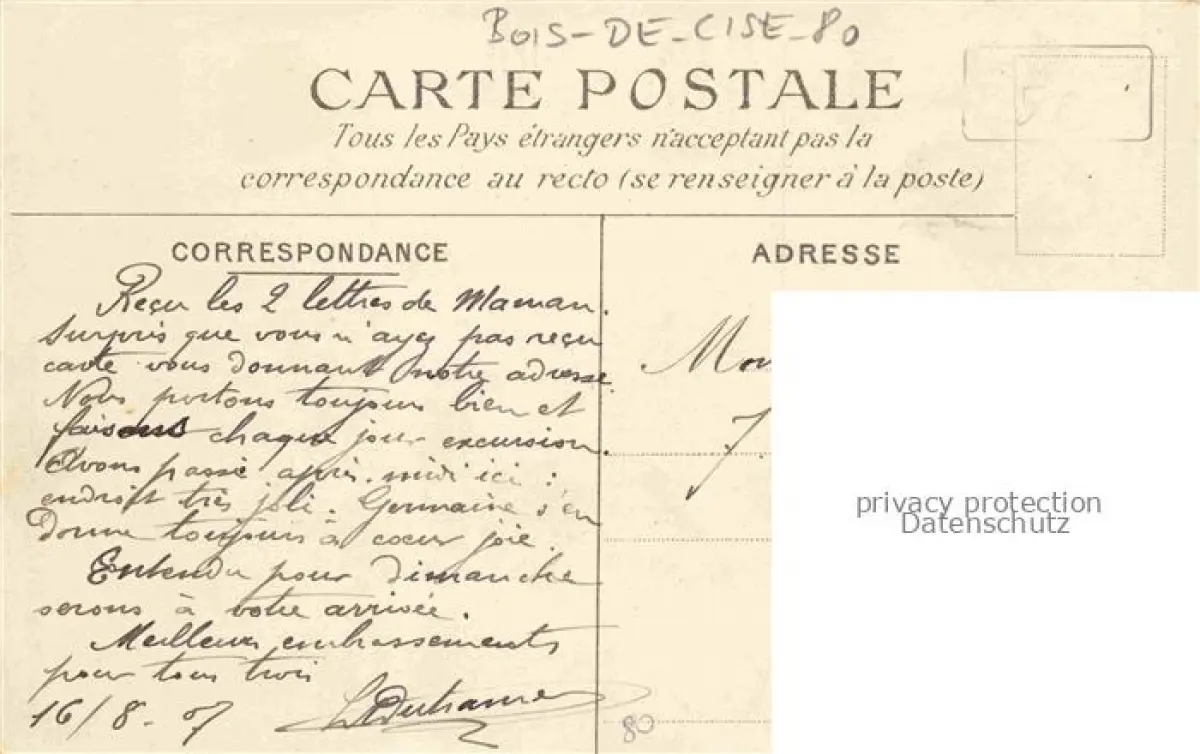 BOIS-DE-CISE-80
CARTE POSTALE
Tous les Pays étrangers n'acceptant pas la
correspondance au recto (se renseigner à la poste)
CORRESPONDANCE
Reçu les 2 lettres de Maman.
Surpris que vous n'ayez pas reçu
carte vous donnant notre adresse.
Nous portons toujours bien et
faisons chaque jour excursion.
Avons passé après-midi ici :
endroit très joli. Germaine s'en
donne toujours à cœur joie.
Entendu pour dimanche
serons à votre arrivée.
Meilleurs embrassements
pour tous trois
16/8-07
ADRESSE
7.
privacy protection
Datenschutz
80